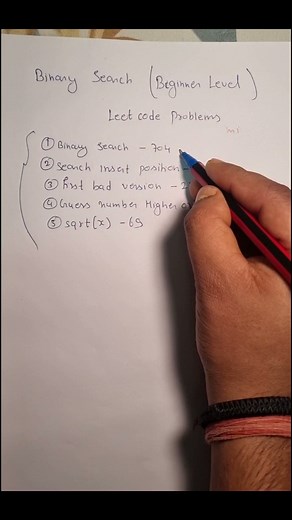 Binary Search (Beginner Level)
Leet code Problems
① Binary Search - 704
② Search insert position -
③ First bad version - 2
④ Guess number Higher o
⑤ sqrt(x) - 69